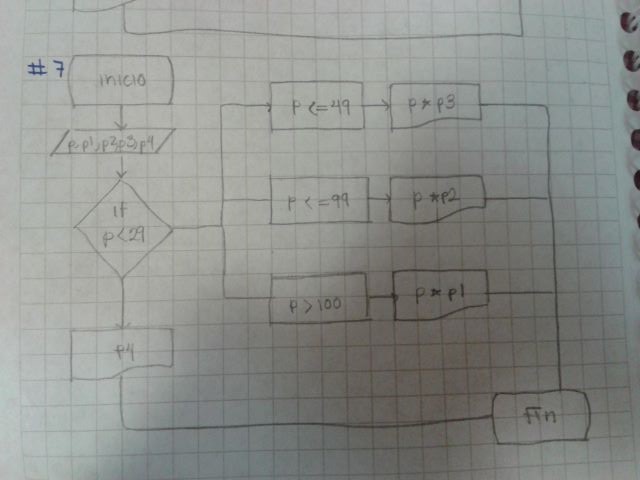 #7
inicio
p,p1,p2,p3,p4
if
p<29
p4
p <=49
p * p3
p <=99
p *p2
p >100
p * p1
Fin